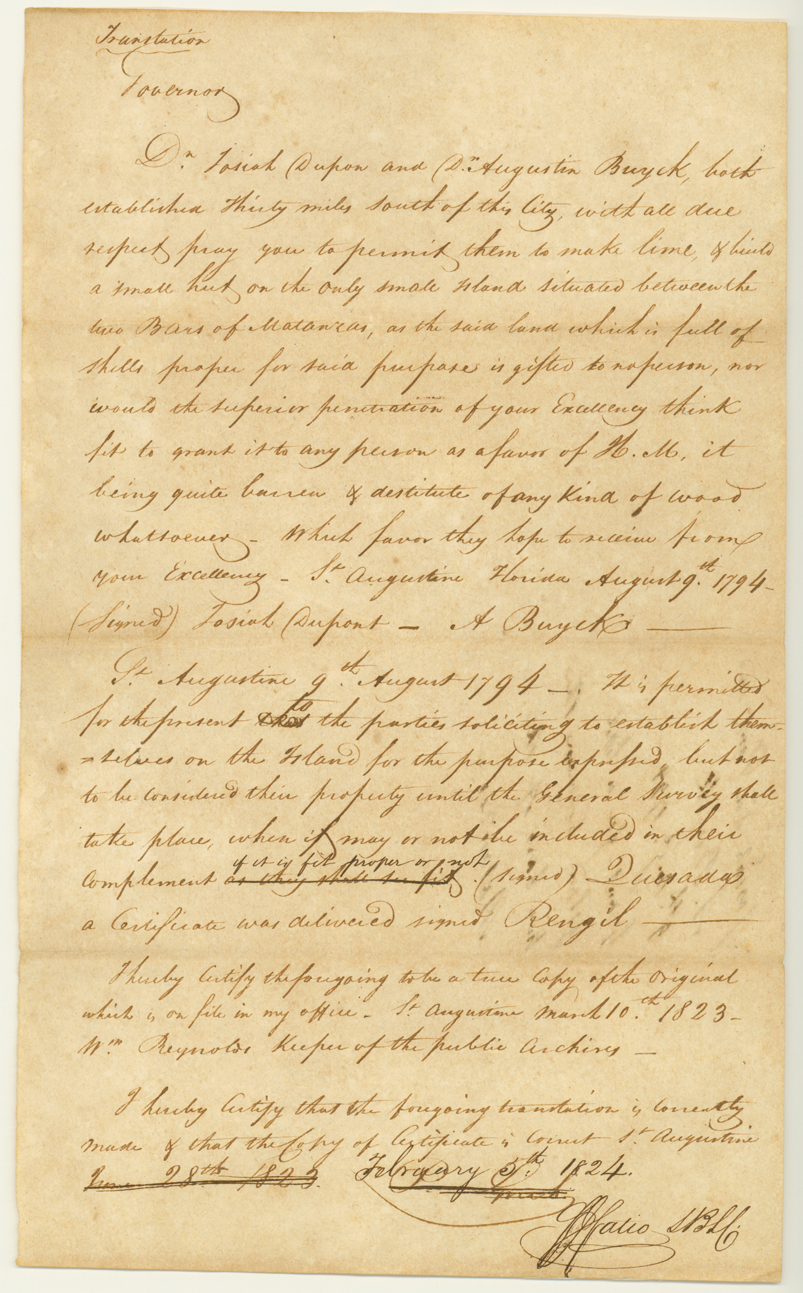 Translation
Governor
Dn. Josiah Dupon and Dn. Augustin Buyck, both
established Thirty miles South of this City, with all due
respect pray you to permit them to make lime, & build
a small hut on the only small Island situated between the
two Bars of Matanzas, as the said land which is full of
shells proper for said purpose is gifted to no person, nor
would the superior penetration of your Excellency think
fit to grant it to any person as a favor of H. M, it
being quite barren & destitute of any Kind of wood
whatsoever - Which favor they hope to receive from
your Excellency - St. Augustine Florida August 9th. 1794 -
(Signed) Josiah Dupont - A Buyck -
St. Augustine 9th. August 1794 - . It is permitted
for the present to the parties soliciting to establish them=
=selves on the Island for the purpose expressed, but not
to be considered their property until the General Survey shall
take place, when it may or not be included in their
if it is fit proper or not
complement as they shall see fit. (signed) Quesada
a Certificate was delivered signed Rengil
I hereby Certify the foregoing to be a true Copy of the Original
which is on file in my office - St Augustine March 10.th 1823 -
Wm. Reynolds Keeper of the public Archives -
I hereby Certify that the foregoing translation is correctly
made & that the Copy of Certificate is Correct St. Augustine
June 28th 1823. February 5th. 1824.
FJFatio SBLC.